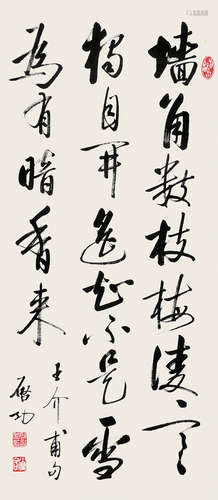 墙角数枝梅凌寒
独自开遥知不是雪
為有暗香来
王介甫句
启功